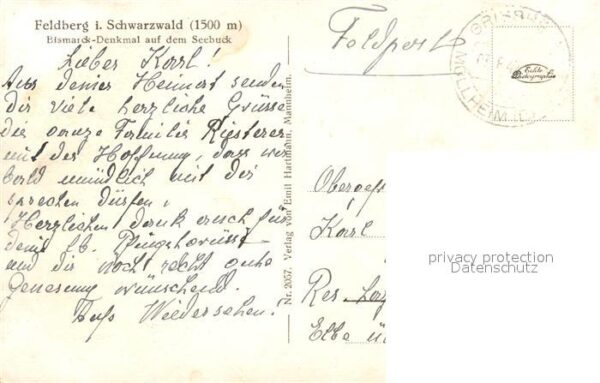 Feldberg i. Schwarzwald (1500 m)
Bismarck-Denkmal auf dem Seebuck
Lieber Karl!
Aus deiner Heimat senden
dir viele herzliche Grüsse
die ganze Familie Risterer
mit der Hoffnung, dass wir
bald mündlich mit dir
sprechen dürfen,
Herzlichen dank auch für
dein lb. Pfingstgruss
und dir noch recht gute
Genesung wünschend.
Aufs Wiedersehen!
Nr. 2057. Verlag von Emil Hartmann, Mannheim.
Feldpost
MÜLLHEIM
Echte
Photographie
Obergef
Karl
Res. Laz
Elbe
privacy protection
Datenschutz